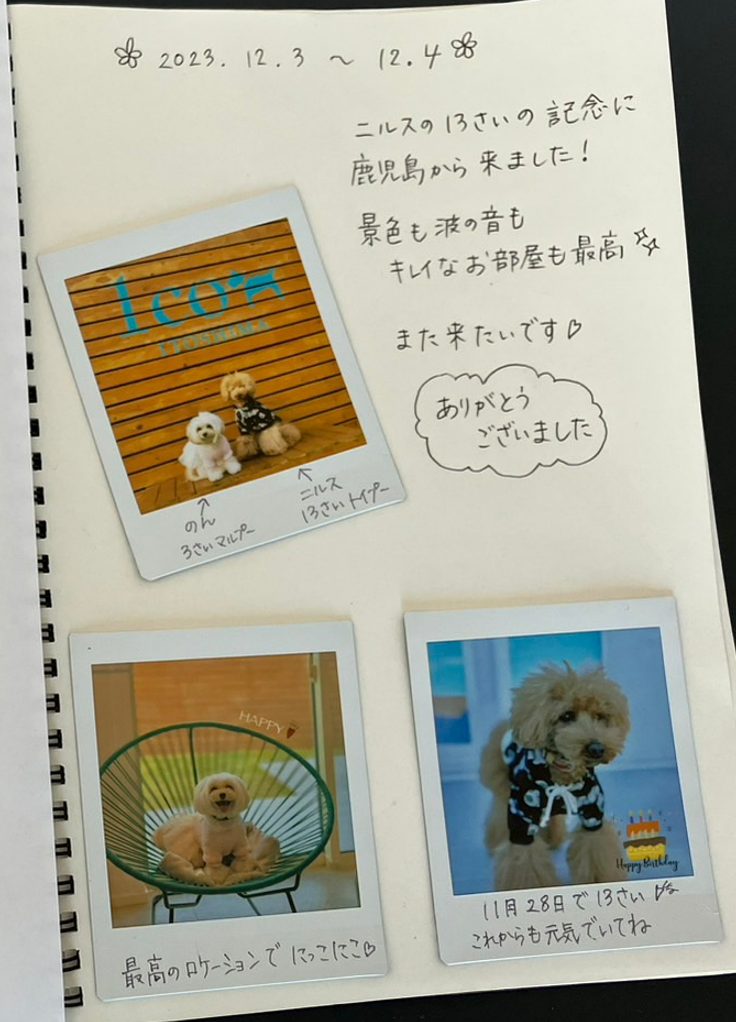 2023. 12.3 ～ 12.4
ニルスの13さいの記念に
鹿児島から来ました！
景色も波の音も
キレイなお部屋も最高
また来たいです♡
ありがとう
ございました
Ico
ITOSHIMA
↑
のん
3さいマルプー
↑
ニルス
13さいトイプー
HAPPY
最高のロケーションでにっこにこ♡
Happy Birthday
11月28日で13さい
これからも元気でいてね